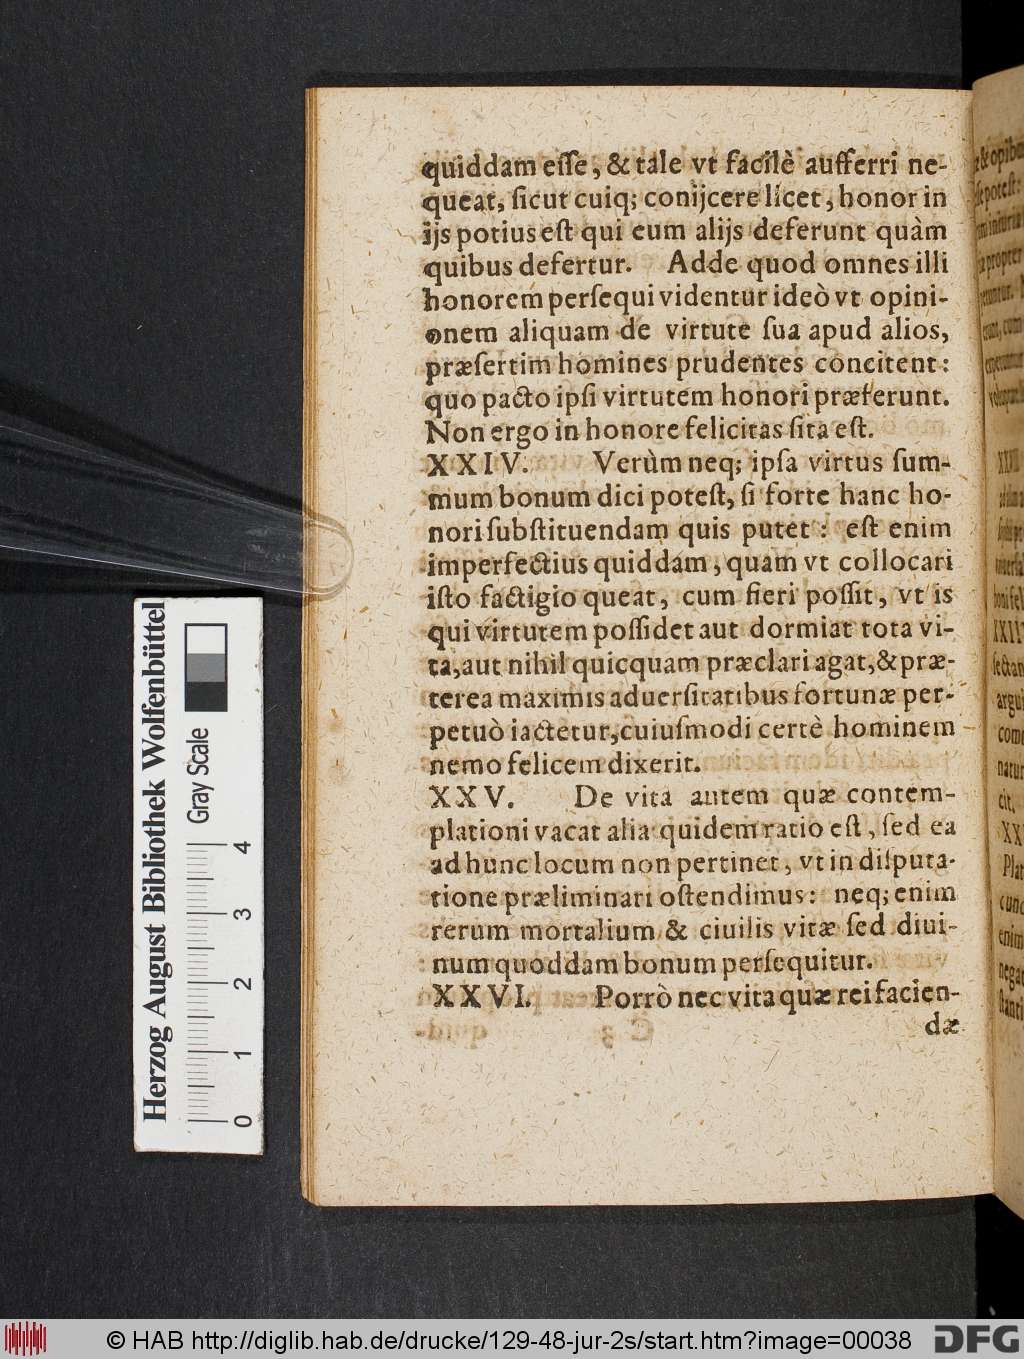 quiddam eſſe, & tale vt facilè aufferri ne-
queat, ſicut cuiq; conijcere licet, honor in
ijs potius eſt qui eum alijs deferunt quàm
quibus defertur. Adde quod omnes illi
honorem perſequi videntur ideò vt opini-
onem aliquam de virtute ſua apud alios,
præſertim homines prudentes concitent:
quo pacto ipſi virtutem honori præferunt.
Non ergo in honore felicitas ſita eſt.
XXIV. Verùm neq; ipſa virtus ſum-
mum bonum dici poteſt, ſi forte hanc ho-
nori ſubſtituendam quis putet: eſt enim
imperfectius quiddam, quam vt collocari
iſto factigio queat, cum fieri poſſit, vt is
qui virtutem poſſidet aut dormiat tota vi-
ta, aut nihil quicquam præclari agat, & præ-
terea maximis aduerſitatibus fortunæ per-
petuò iactetur, cuiuſmodi certè hominem
nemo felicem dixerit.
XXV. De vita autem quæ contem-
plationi vacat alia quidem ratio eſt, ſed ea
ad hunc locum non pertinet, vt in diſputa-
tione præliminari oſtendimus: neq; enim
rerum mortalium & ciuilis vitæ ſed diui-
num quoddam bonum perſequitur.
XXVI. Porrò nec vita quæ rei facien-
dæ
& opibu
poteſt:
propter
cum
XXVII
boni fel
XXIIX
ſectan
argui
com
natur
cit.
XX
Plat
cunc
enim
negat
ſtanti
Herzog August Bibliothek Wolfenbüttel
Gray Scale
0 1 2 3 4
© HAB http://diglib.hab.de/drucke/129-48-jur-2s/start.htm?image=00038
DFG